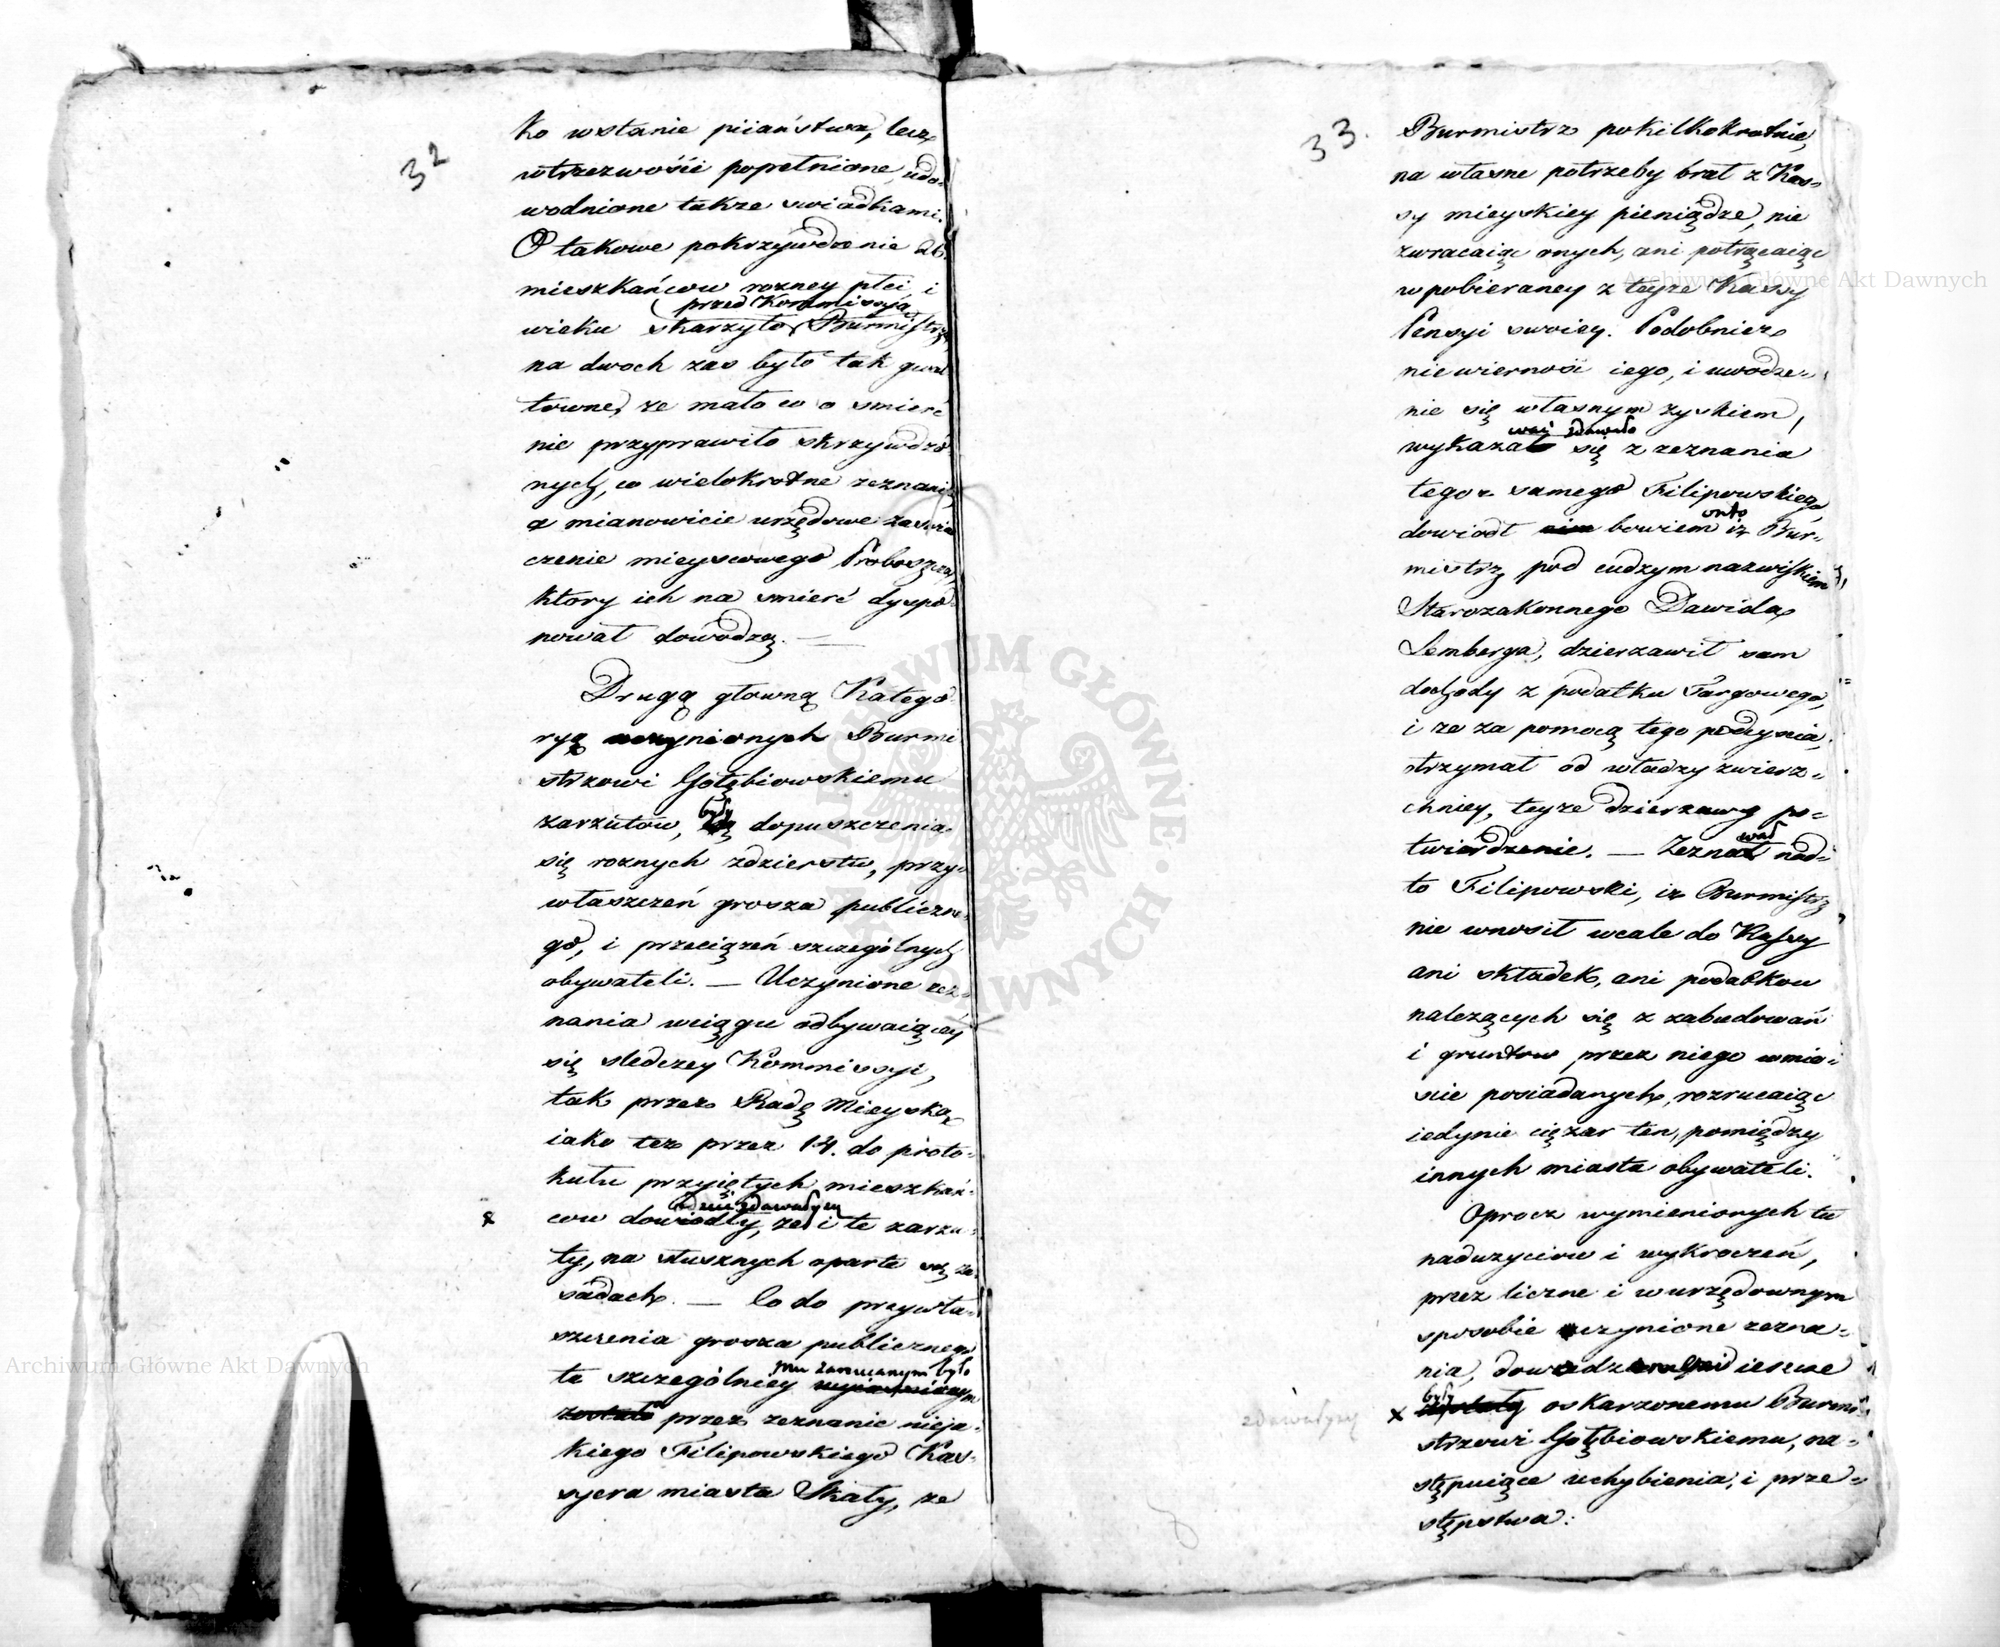 32
ko wstanie piiaństwa, lecz
wtrzezwości popełnione, udo-
wodnione także swiadkami.
O takowe pokrzywdzenie 26.
mieszkańcow rozney płci i
przed Kommissyią
wieku skarzyło Burmistrza,
na dwoch zas było tak gwał
towne, ze mało co o smierć
nie przyprawiło skrzywdzo
nych, co wielokrotne zeznania,
a mianowicie urzędowe zaswia
czenie mieyscowego Proboszcza,
ktory ich na smierć dyspo
nował dowodzą. —
Drugą głowną Katego
ryą uczynionych Burmi
strzowi Gołębiowskiemu
były
zarzutow, są dopuszczenia
się roznych zdzierstw, przy-
właszczeń grosza publiczne-
go, i przeciązeń szczególnych
obywateli. — Uczynione zez-
nania wciągu odbywaiącey
się sledczey Kommissyi,
tak przez Radę Mieyską,
iako tez przez 14. do proto-
kułu przyiętych mieszkań-
dzić zdawały
x cow dowiodły, ze i te zarzu-
ty, na słusznych oparte są za-
sadach. — Co do przywła-
szczenia grosza publicznego
mu zarzucanym było
te szczególniey
zostało przez zeznanie nieja-
kiego Filipowskiego Kas-
syera miasta Skały, ze
33.
Burmistrz pokilkokrotnie,
na własne potrzeby brał z Kas-
sy mieyskiey pieniądze, nie
zwracaiąc onych, ani potrącaiąc
wpobieraney z teyze Kassy
Pensyi swoiey. Podobniez
niewierność iego, i uwodze-
nie się własnym zyskiem,
wać zdawało
wykazało się z zeznania
tegoz samego Filipowskiego
dowiodł bowiem iz Bur-
mistrz pod cudzym nazwiskiem
Starozakonnego Dawida
Lemberga, dzierzawił sam
dochody z podatku Targowego,
i ze za pomocą tego podeyscia,
otrzymał od władzy zwierz-
chniey, teyze dzierzawy po-
wał
twierdzenie. — Zeznał nad-
to Filipowski, iz Burmistrz
nie wnosił wcale do Kassy
ani składek, ani podatkow
nalezących się z zabudowań
i gruntow przez niego wmie-
scie posiadanych, rozrucaiąc
iedynie cięzar ten, pomiędzy
innych miasta obywateli.
Oprocz wymienionych tu
naduzyciow i wykroczeń,
przez liczne i wurzędownym
sposobie uczynione zezna-
nia, ieszcze
były
x oskarzonemu Burmi-
zdawałyszy
strzowi Gołębiowskiemu, na-
stępuiące uchybienia, i prze-
stępstwa:
Archiwum Główne Akt Dawnych
Archiwum Główne Akt Dawnych
ARCHIWUM GŁÓWNE AKT DAWNYCH